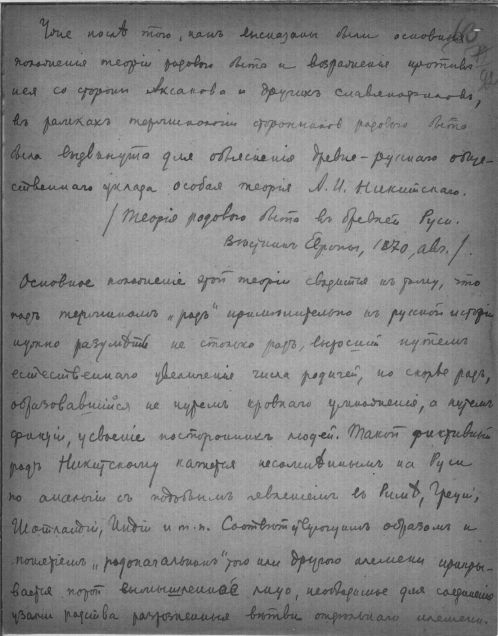 Уже послѣ того, какъ высказаны были основныя
положенія теоріи родового быта и возраженія противъ
нея со стороны Аксакова и другихъ славянофиловъ,
въ рамкахъ терминологіи сторонниковъ родового быта
была выдвинута для объясненія древне-русскаго обще-
ственнаго уклада особая теорія А. И. Никитскаго.
/Теорія родового быта въ древней Руси.
Вѣстникъ Европы, 1870, авг./.
Основное положеніе этой теоріи сводится къ тому, что
подъ терминомъ „родъ" примѣнительно къ русской исторіи
нужно разумѣть не столько родъ, выросшій путемъ
естественнаго увеличенія числа родичей, но скорѣе родъ,
образовавшійся не путемъ кровнаго умноженія, а путемъ
фикціи, усвоенія постороннихъ людей. Такой фиктивный
родъ Никитскому кажется несомнѣннымъ на Руси
по аналогіи съ подобнымъ явленіемъ въ Римѣ, Греціи,
Шотландіи, Индіи и т. п. Соотвѣтствующимъ образомъ и
понятіемъ „родоначальникъ" того или другого племени прикры-
вается порой вымышленное лицо, необходимое для соединенія
узами родства разрозненныя вѣтви отдѣльнаго племени.